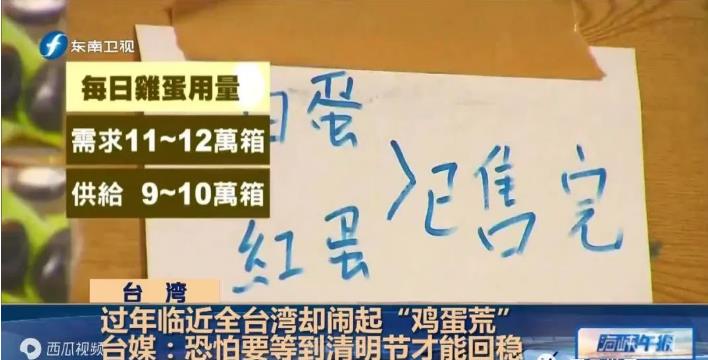 东南卫视
每日雞蛋用量
需求11~12萬箱
供給 9~10萬箱
白蛋
紅蛋
已售完
台 湾
过年临近全台湾却闹起“鸡蛋荒”
台媒：恐怕要等到清明节才能回稳
西瓜视频
海峡午报